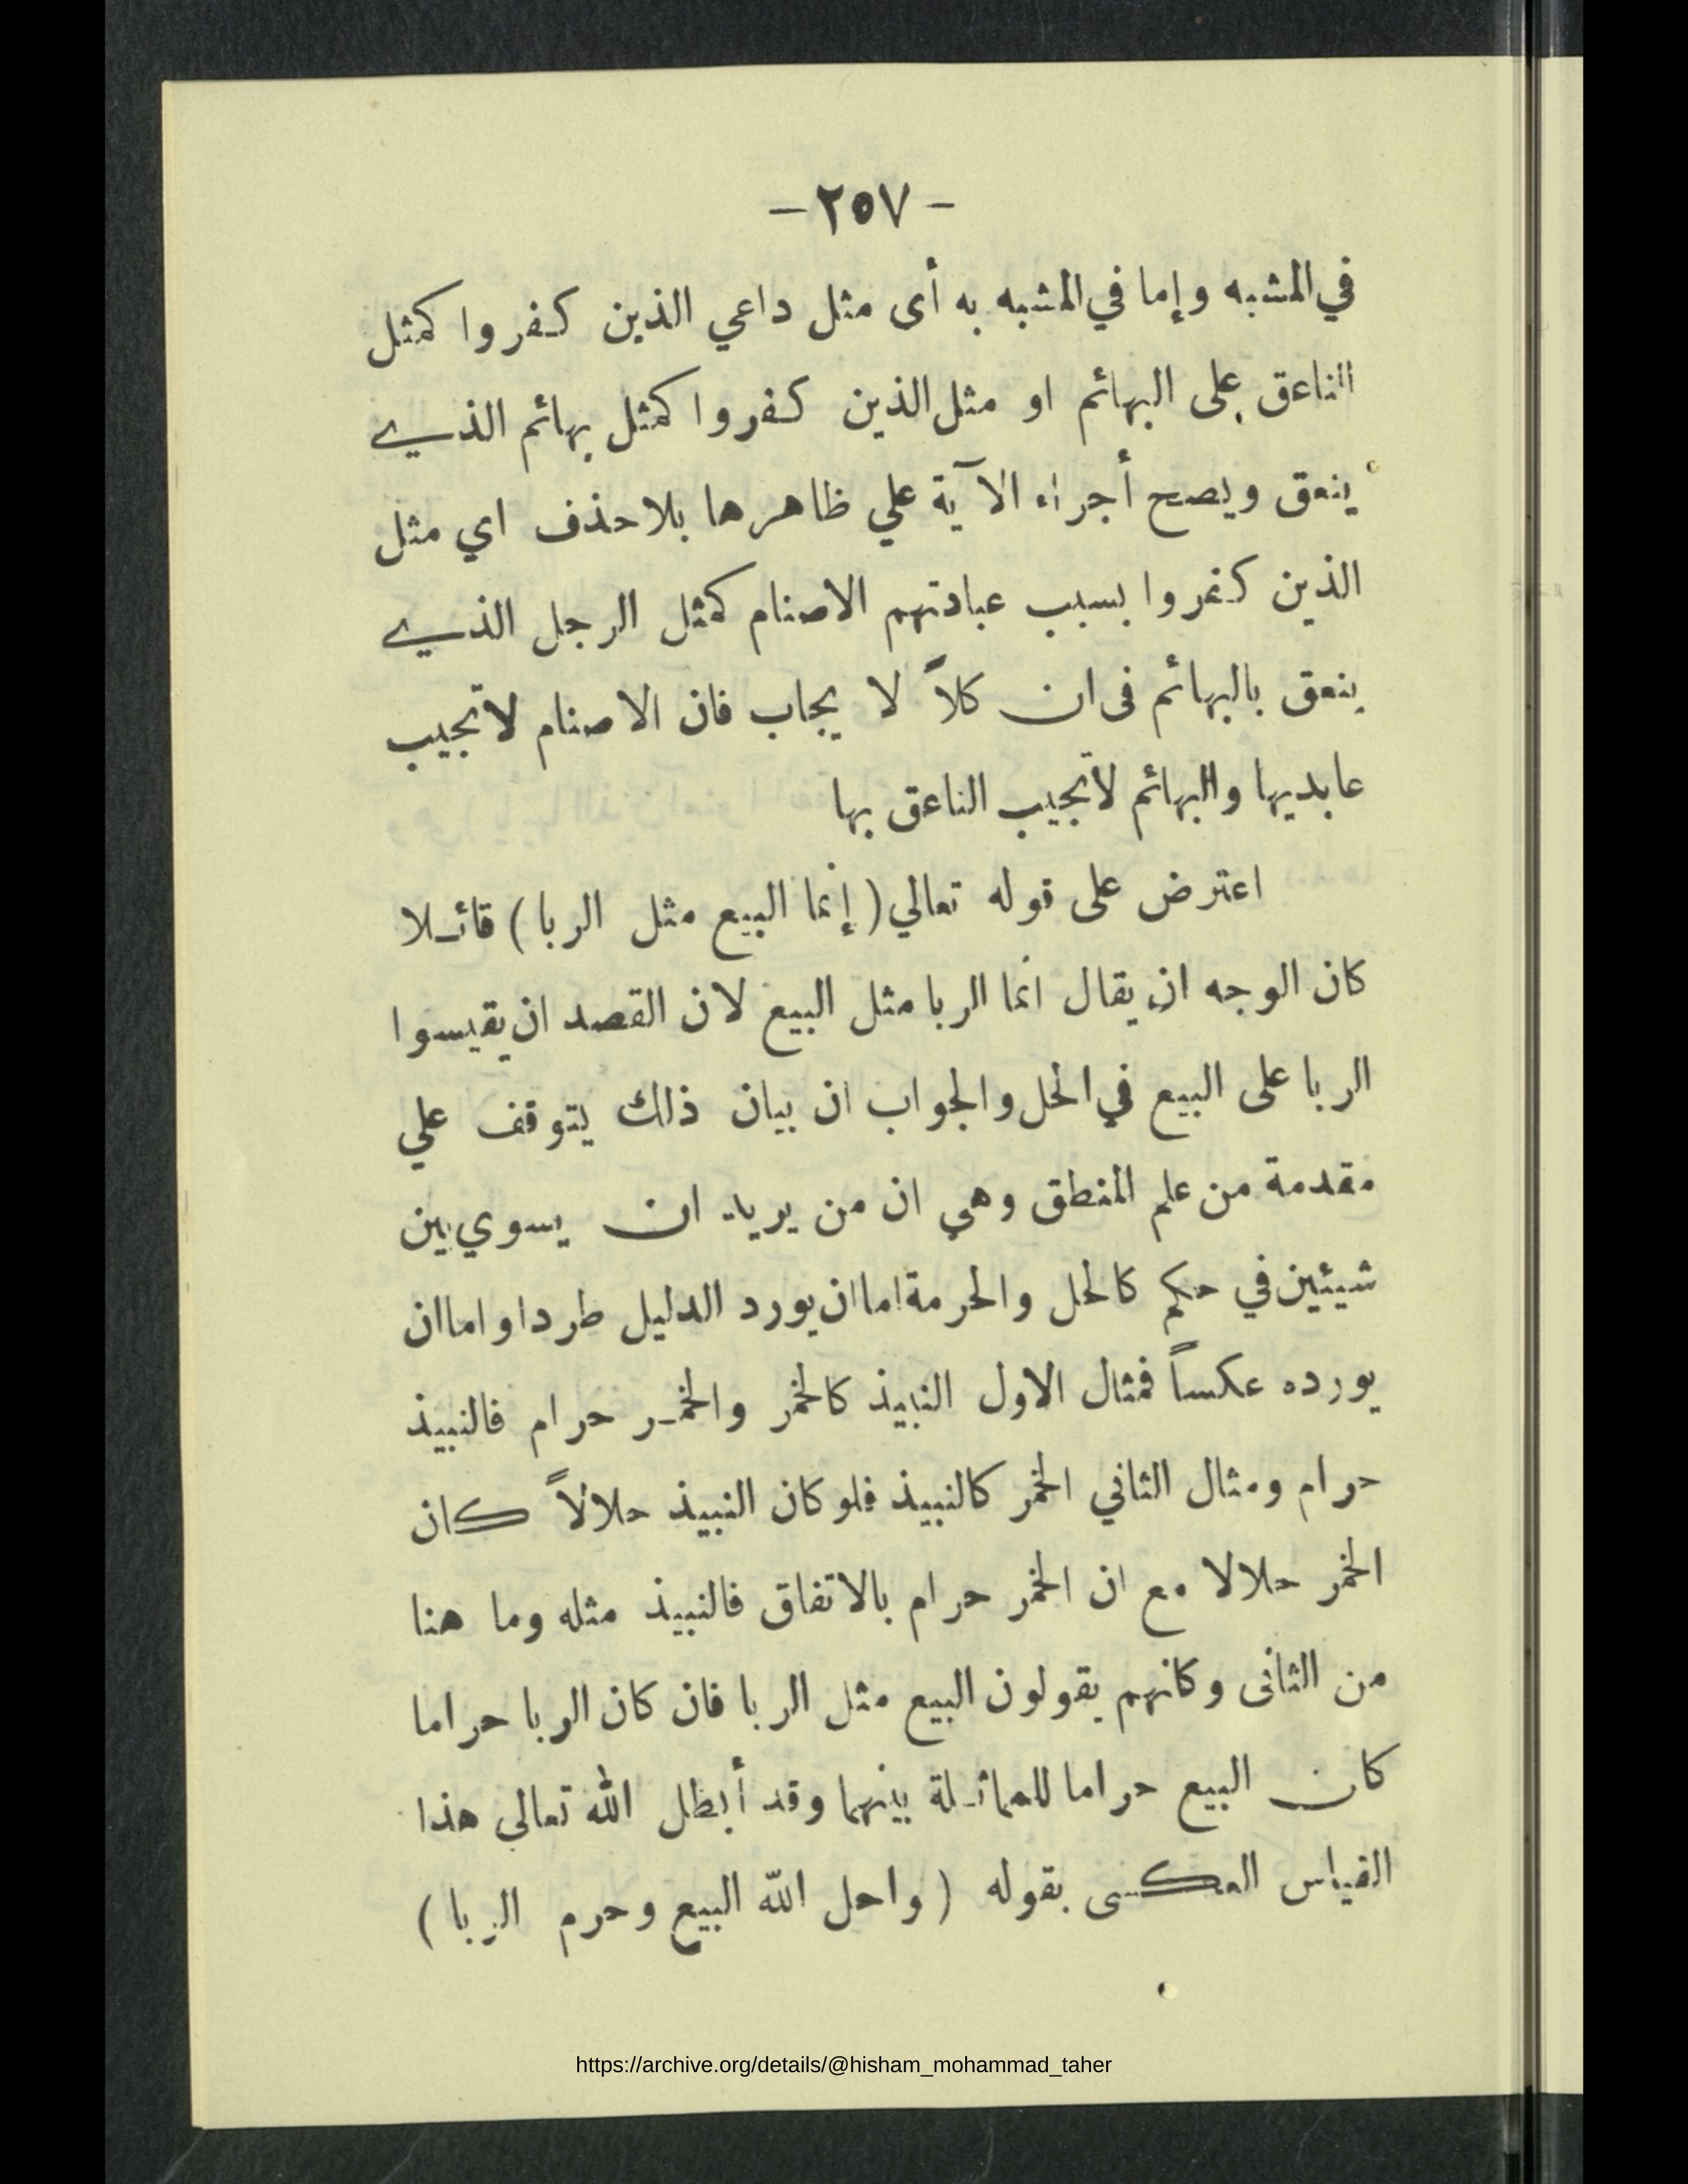 - ٢٥٧ -
في المشبه وإما في المشبه به أى مثل داعي الذين كفروا كمثل
الناعق على البهائم او مثل الذين كفروا كمثل بهائم الذي
ينعق ويصح أجراء الآية علي ظاهرها بلا حذف اي مثل
الذين كفروا بسبب عبادتهم الاصنام كمثل الرجل الذي
ينعق بالبهائم فى ان كلاً لا يجاب فان الاصنام لا تجيب
عابديها والبهائم لا تجيب الناعق بها
اعترض على قوله تعالي ( إنما البيع مثل الربا ) قائلا
كان الوجه ان يقال انما الربا مثل البيع لان القصد ان يقيسوا
الربا على البيع في الحل والجواب ان بيان ذلك يتوقف علي
مقدمة من علم المنطق وهي ان من يريد ان يسوي بين
شيئين في حكم كالحل والحرمة اما ان يورد الدليل طردا واما ان
يورده عكساً فمثال الاول النبيذ كالخمر والخمر حرام فالنبيذ
حرام ومثال الثاني الخمر كالنبيذ فلو كان النبيذ حلالاً كان
الخمر حلالا مع ان الخمر حرام بالاتفاق فالنبيذ مثله وما هنا
من الثانى وكانهم يقولون البيع مثل الربا فان كان الربا حراما
كان البيع حراما للماثلة بينهما وقد أبطل الله تعالى هذا
القياس العكسى بقوله ( واحل الله البيع وحرم الربا )
https://archive.org/details/@hisham_mohammad_taher